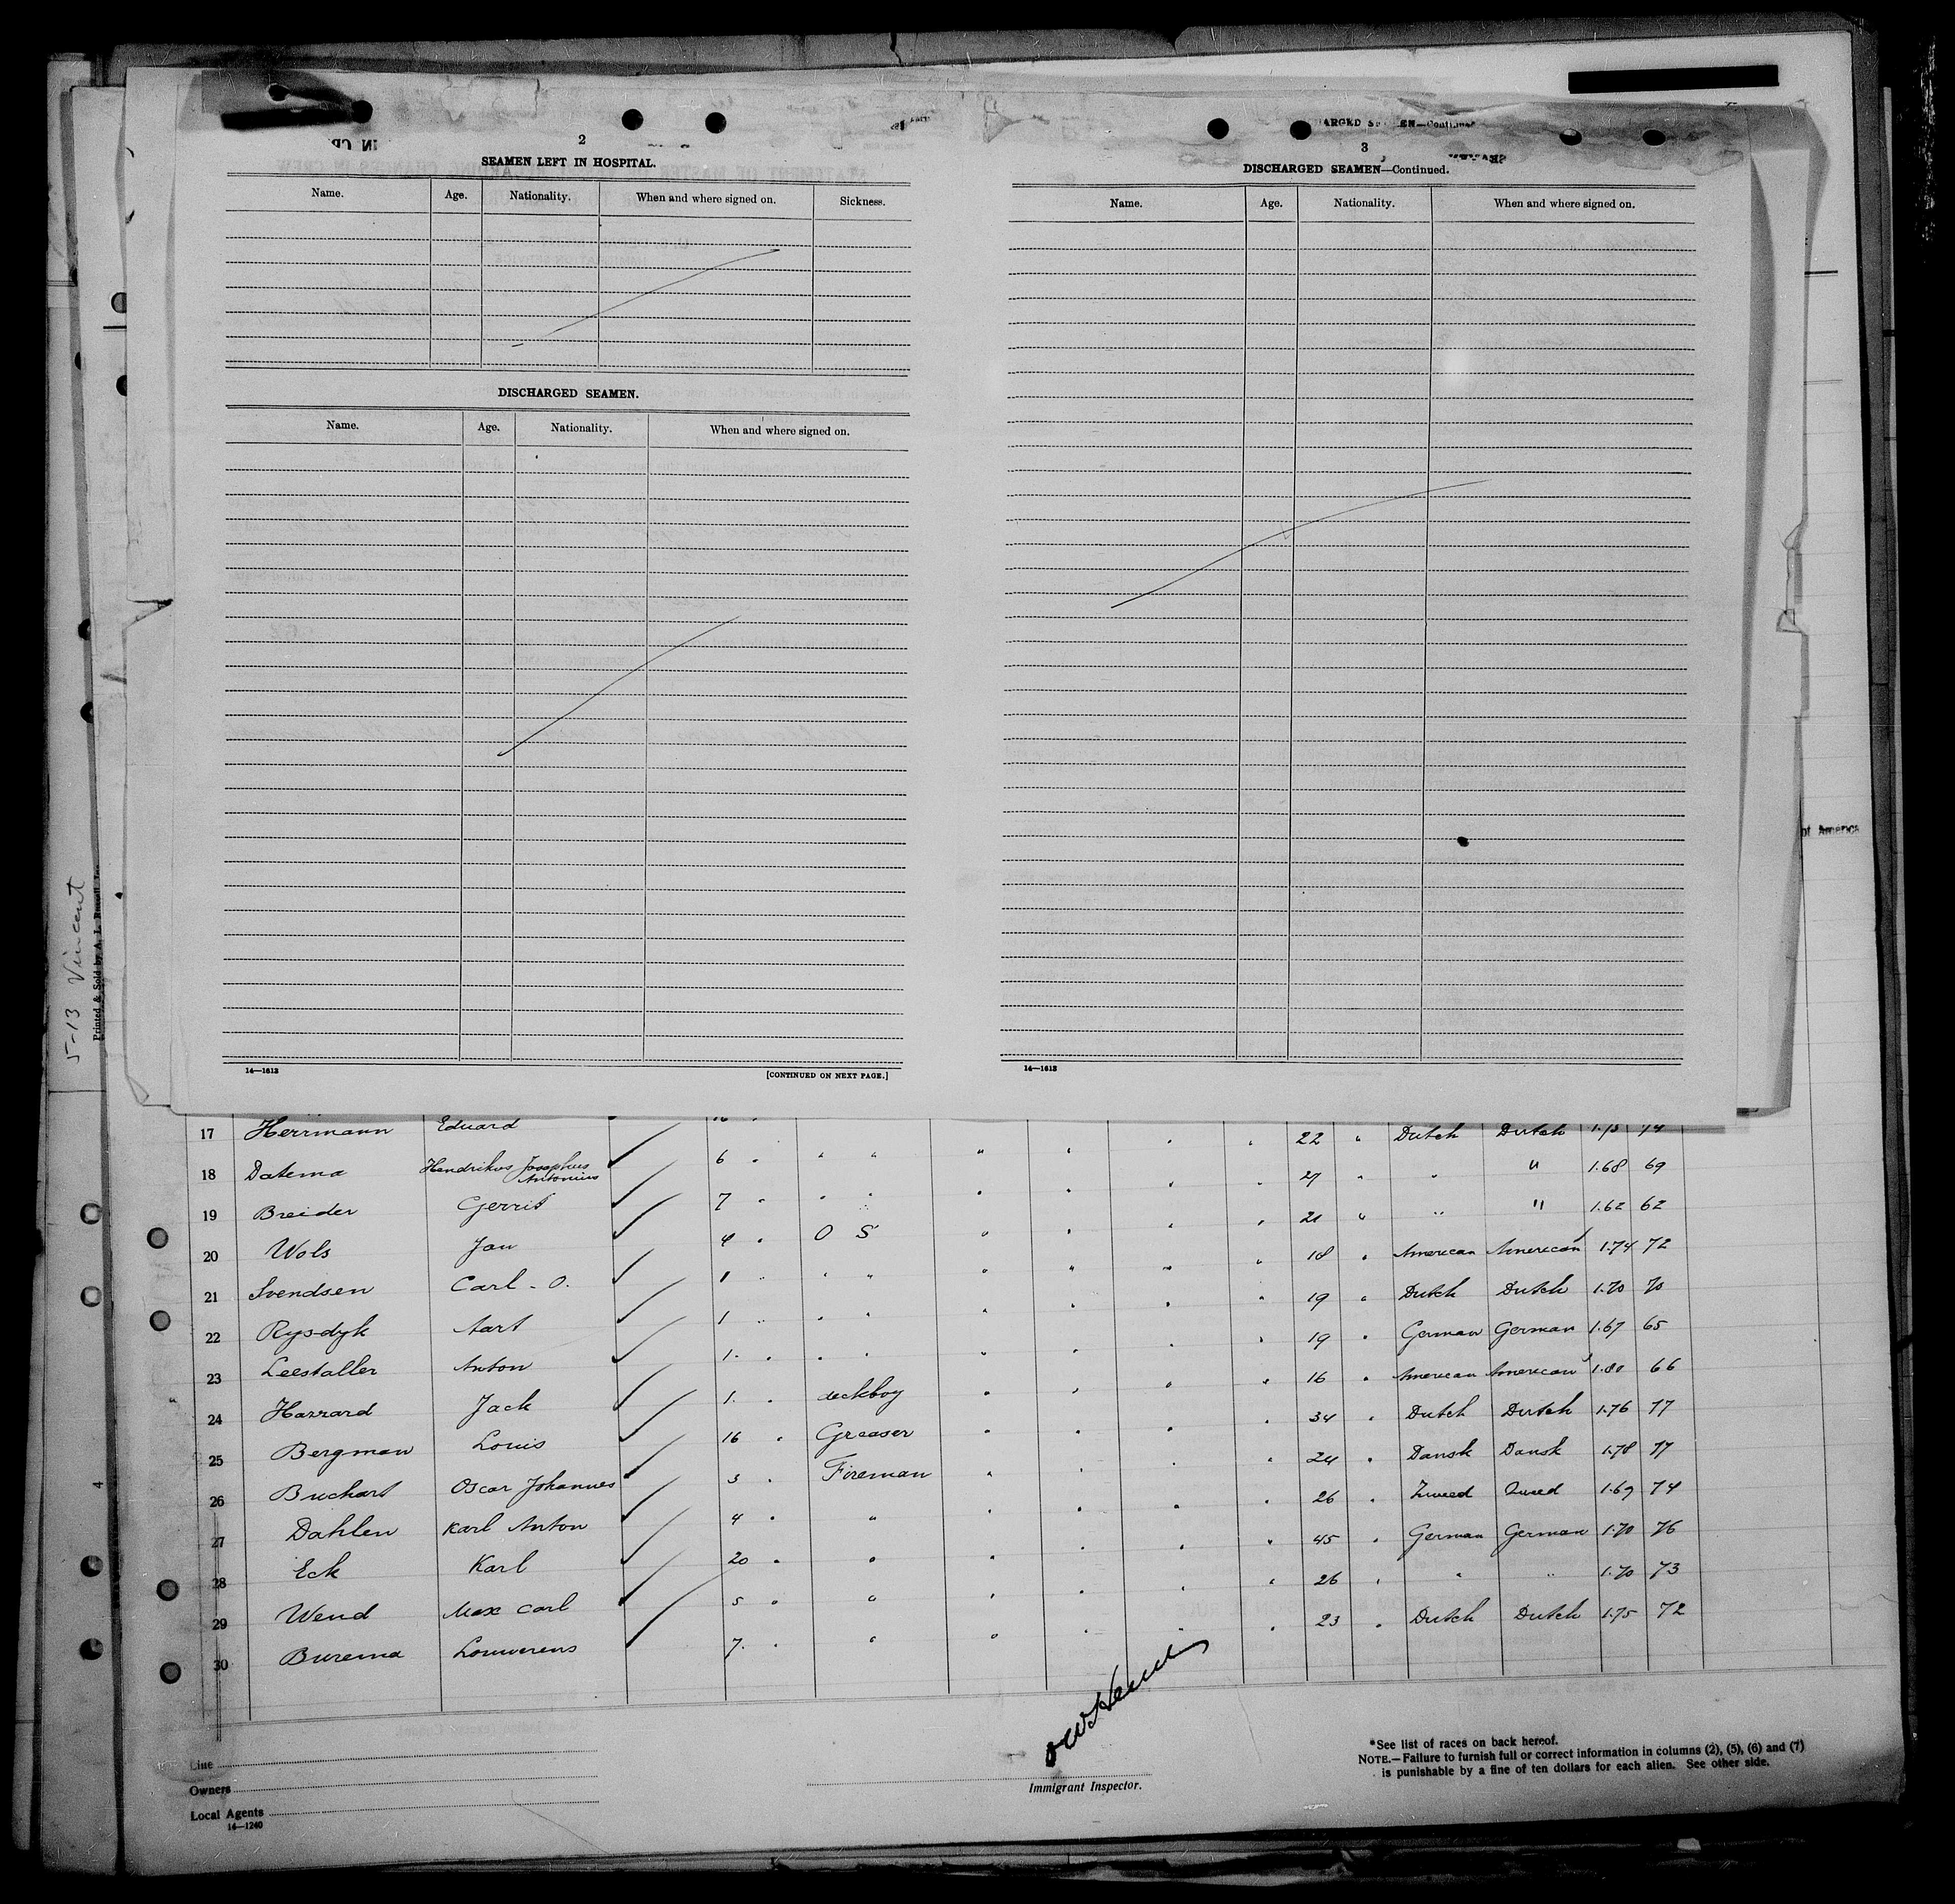 ARGED S EN—Continued
2
SEAMEN LEFT IN HOSPITAL.
Name. Age. Nationality. When and where signed on. Sickness.
DISCHARGED SEAMEN.
Name. Age. Nationality. When and where signed on.
14—1613 [CONTINUED ON NEXT PAGE.]
3
DISCHARGED SEAMEN—Continued.
Name. Age. Nationality. When and where signed on.
14—1613
of America
5-13 Vincent
Printed & Sold by A. L. Russell, Inc.
4
17 Herrmann Eduard 22 " Dutch Dutch 1.75 74
18 Datema Hendrikus Josephus Antonius 6 " " " " " 27 " " " 1.68 69
19 Breider Gerrit 7 " " " " " 21 " " " 1.62 62
20 Wols Jan 4 " O S " " " " 18 " American American 1.74 72
21 Svendsen Carl - O. 1 " " " " " " " 19 " Dutch Dutch 1.70 70
22 Rysdyk Aart 1 " " " " " " " 19 " German German 1.67 65
23 Leestaller Anton 1. " " " " " " " 16 " American American 1.80 66
24 Hazzard Jack 1. " deckboy " " " " 34 " Dutch Dutch 1.76 77
25 Bergman Louis 16 " Greaser " " " " 24 " Dansk Dansk 1.78 77
26 Buchart Oscar Johannes 3 " Fireman " " " " 26 " Zweed Zweed 1.69 74
27 Dahlen Karl Anton 4 " " " " " " 45 " German German 1.70 76
28 Eck Karl 20 " " " " " " 26 " " " 1.70 73
29 Wend Max Carl 5 " " " " " " 23 " Dutch Dutch 1.75 72
30 Burema Louwerens 7. " " "
Line
Owners
Local Agents
14—1240
Immigrant Inspector.
*See list of races on back hereof.
NOTE.—Failure to furnish full or correct information in columns (2), (5), (6) and (7)
is punishable by a fine of ten dollars for each alien. See other side.